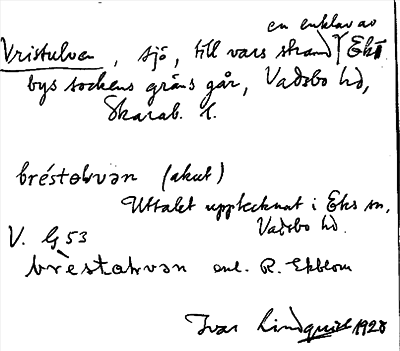 en enklav av
Vristulven, sjö, till vars strand Eks-
bys sockens gräns går, Vadsbo hd,
Skarab. l.
bréstəɬvən (akut)
Uttalet upptecknat i Eks sn,
Vadsbo hd.
V. G 53
brèstəɬvən enl. R. Ekblom
Ivar Lindquist 1928